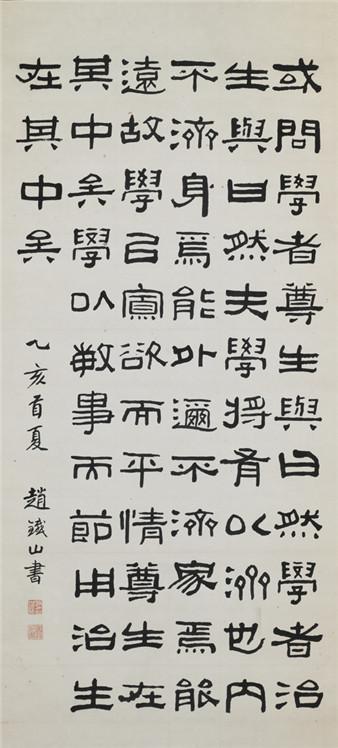 或問學者尊生與曰然學者治
生與曰然夫學將有以濟也內
不濟身焉能外邇不濟家焉能
遠故學㠯寡欲而平情尊生在
其中矣學以敏事而節用治生
在其中矣
乙亥首夏 趙鐵山書